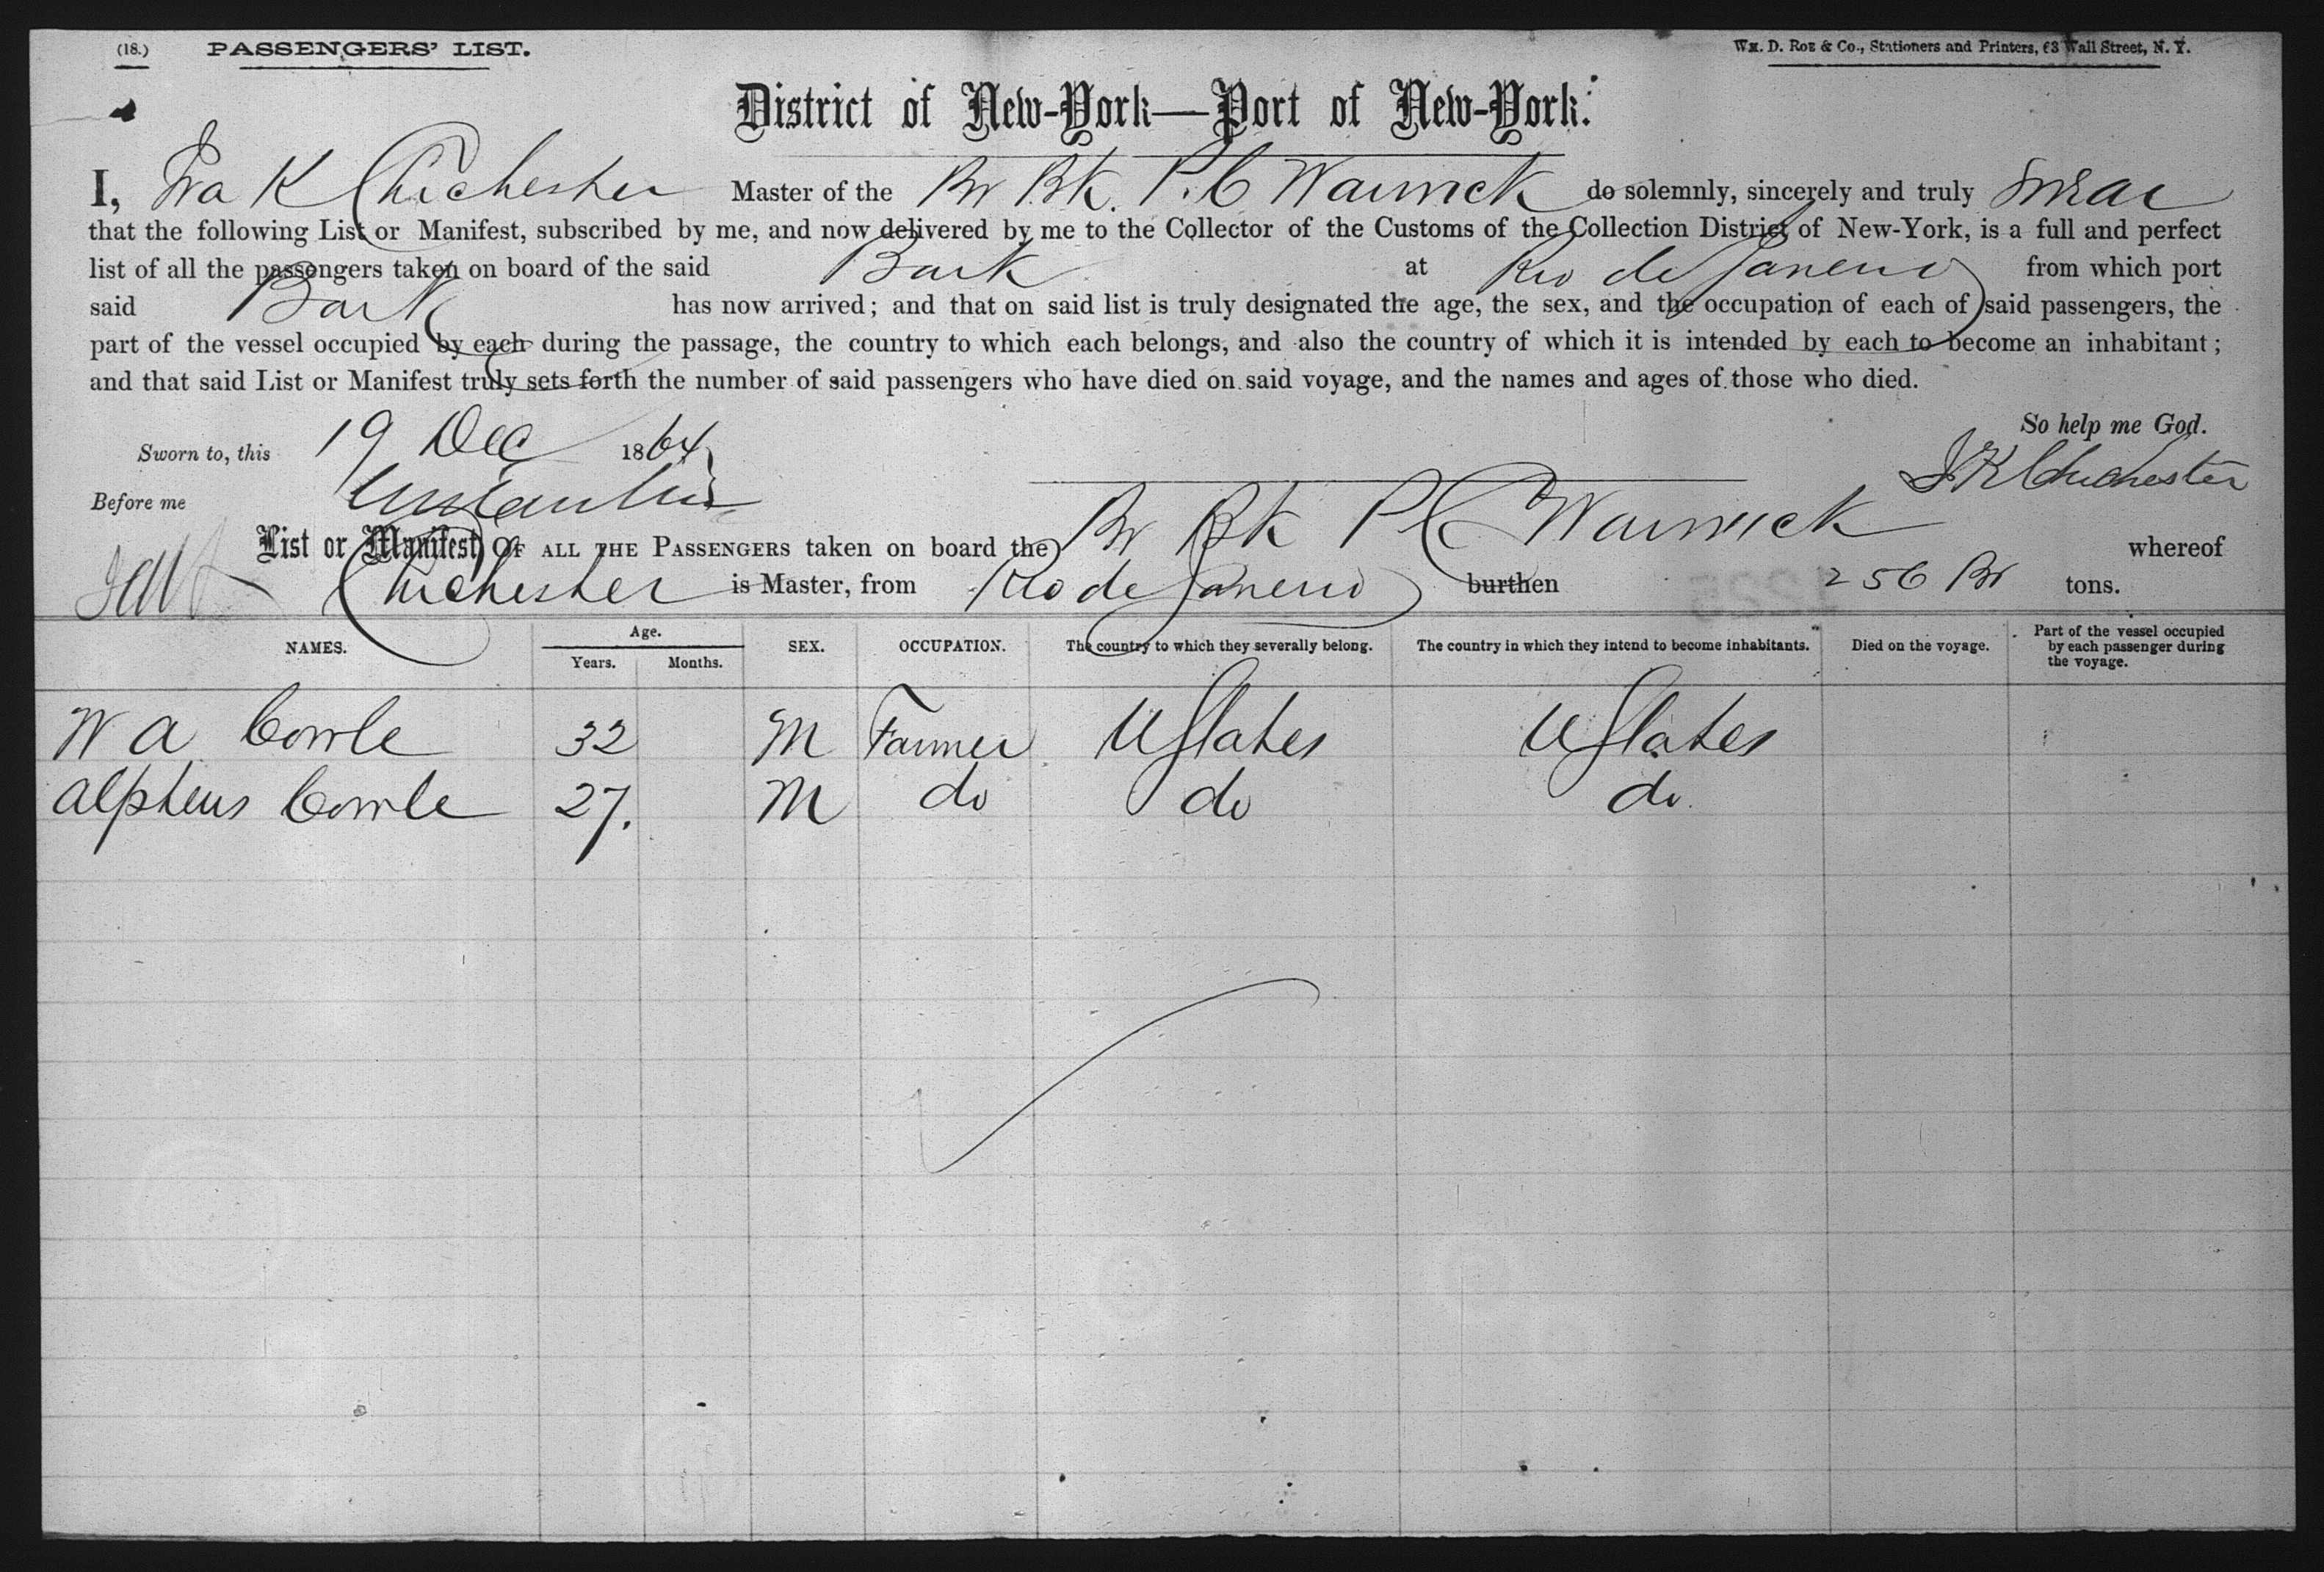 (18.) PASSENGERS' LIST. Wm. D. Roe & Co., Stationers and Printers, 63 Wall Street, N. Y.
District of New-York—Port of New-York.
I, Ira K Chichester Master of the Br Bk. P. C Warwick do solemnly, sincerely and truly swear
that the following List or Manifest, subscribed by me, and now delivered by me to the Collector of the Customs of the Collection District of New-York, is a full and perfect
list of all the passengers taken on board of the said Bark at Rio de Janeiro from which port
said Bark has now arrived; and that on said list is truly designated the age, the sex, and the occupation of each of said passengers, the
part of the vessel occupied by each during the passage, the country to which each belongs, and also the country of which it is intended by each to become an inhabitant;
and that said List or Manifest truly sets forth the number of said passengers who have died on said voyage, and the names and ages of those who died.
So help me God.
Sworn to, this 19 Dec 1864 I K Chichester
Before me
List or Manifest OF ALL THE PASSENGERS taken on board the Br Bk P C Warwick whereof
Chichester is Master, from Rio de Janeiro burthen 256 Br tons.
NAMES. Age. Years. Months. SEX. OCCUPATION. The country to which they severally belong. The country in which they intend to become inhabitants. Died on the voyage. Part of the vessel occupied by each passenger during the voyage.
W A Cowle 32 M Farmer U States U States
Alpheus Cowle 27. M do do do